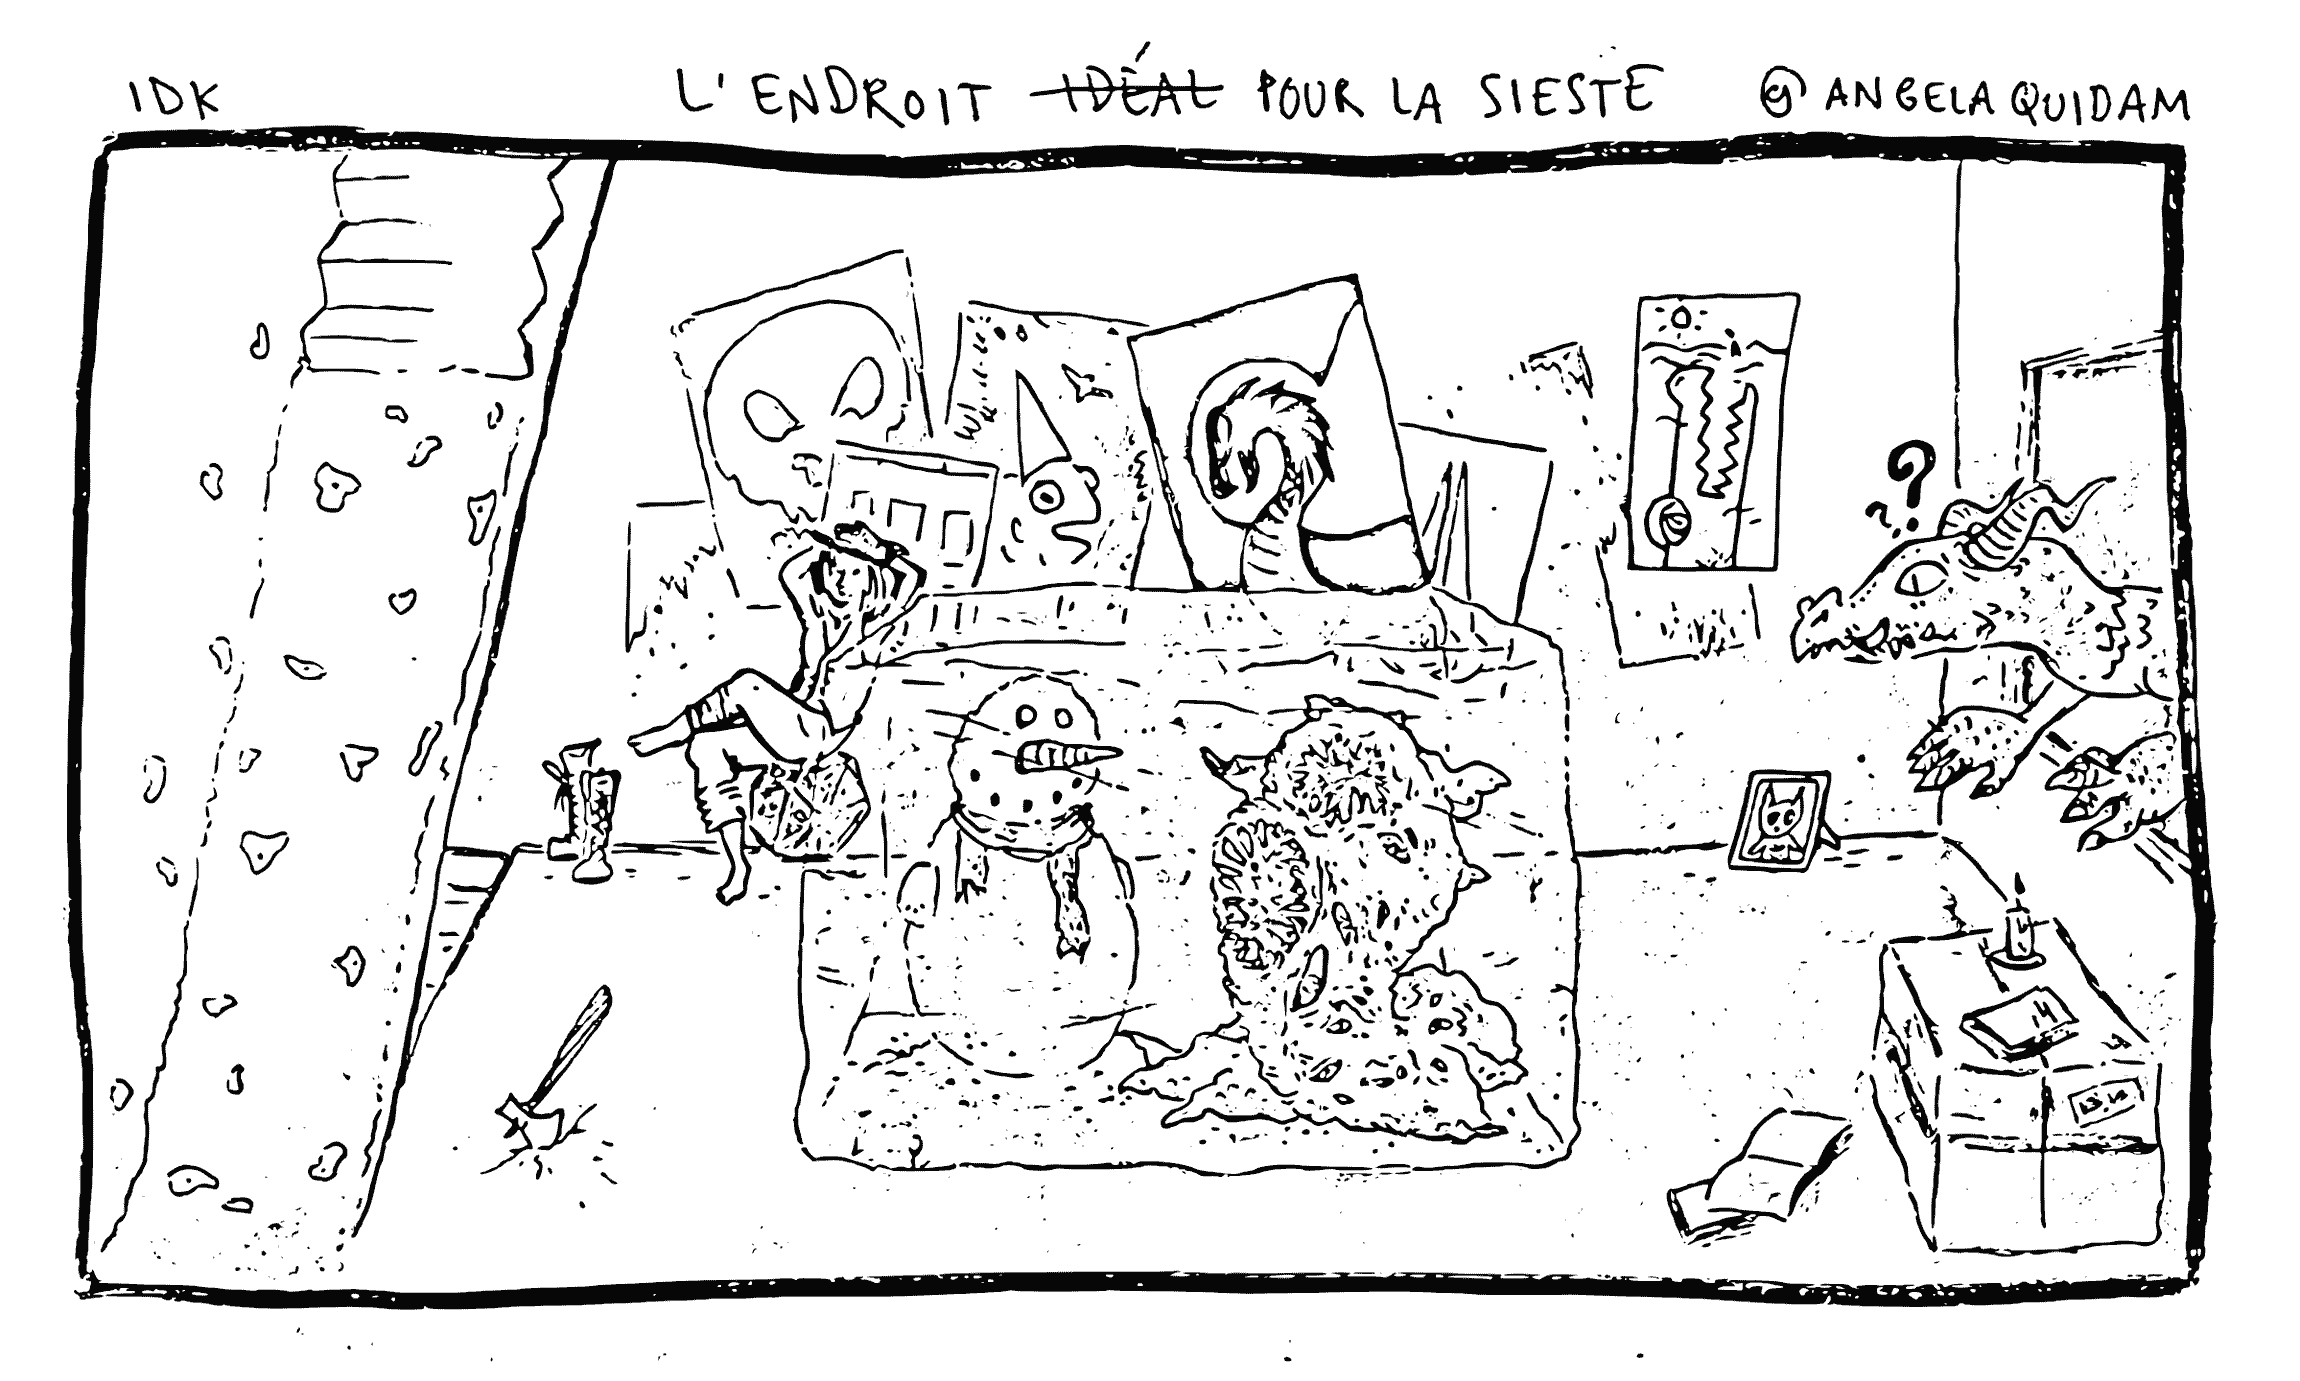 IDK L'ENDROIT IDÉAL POUR LA SIESTE @ANGELAQUIDAM
?
?